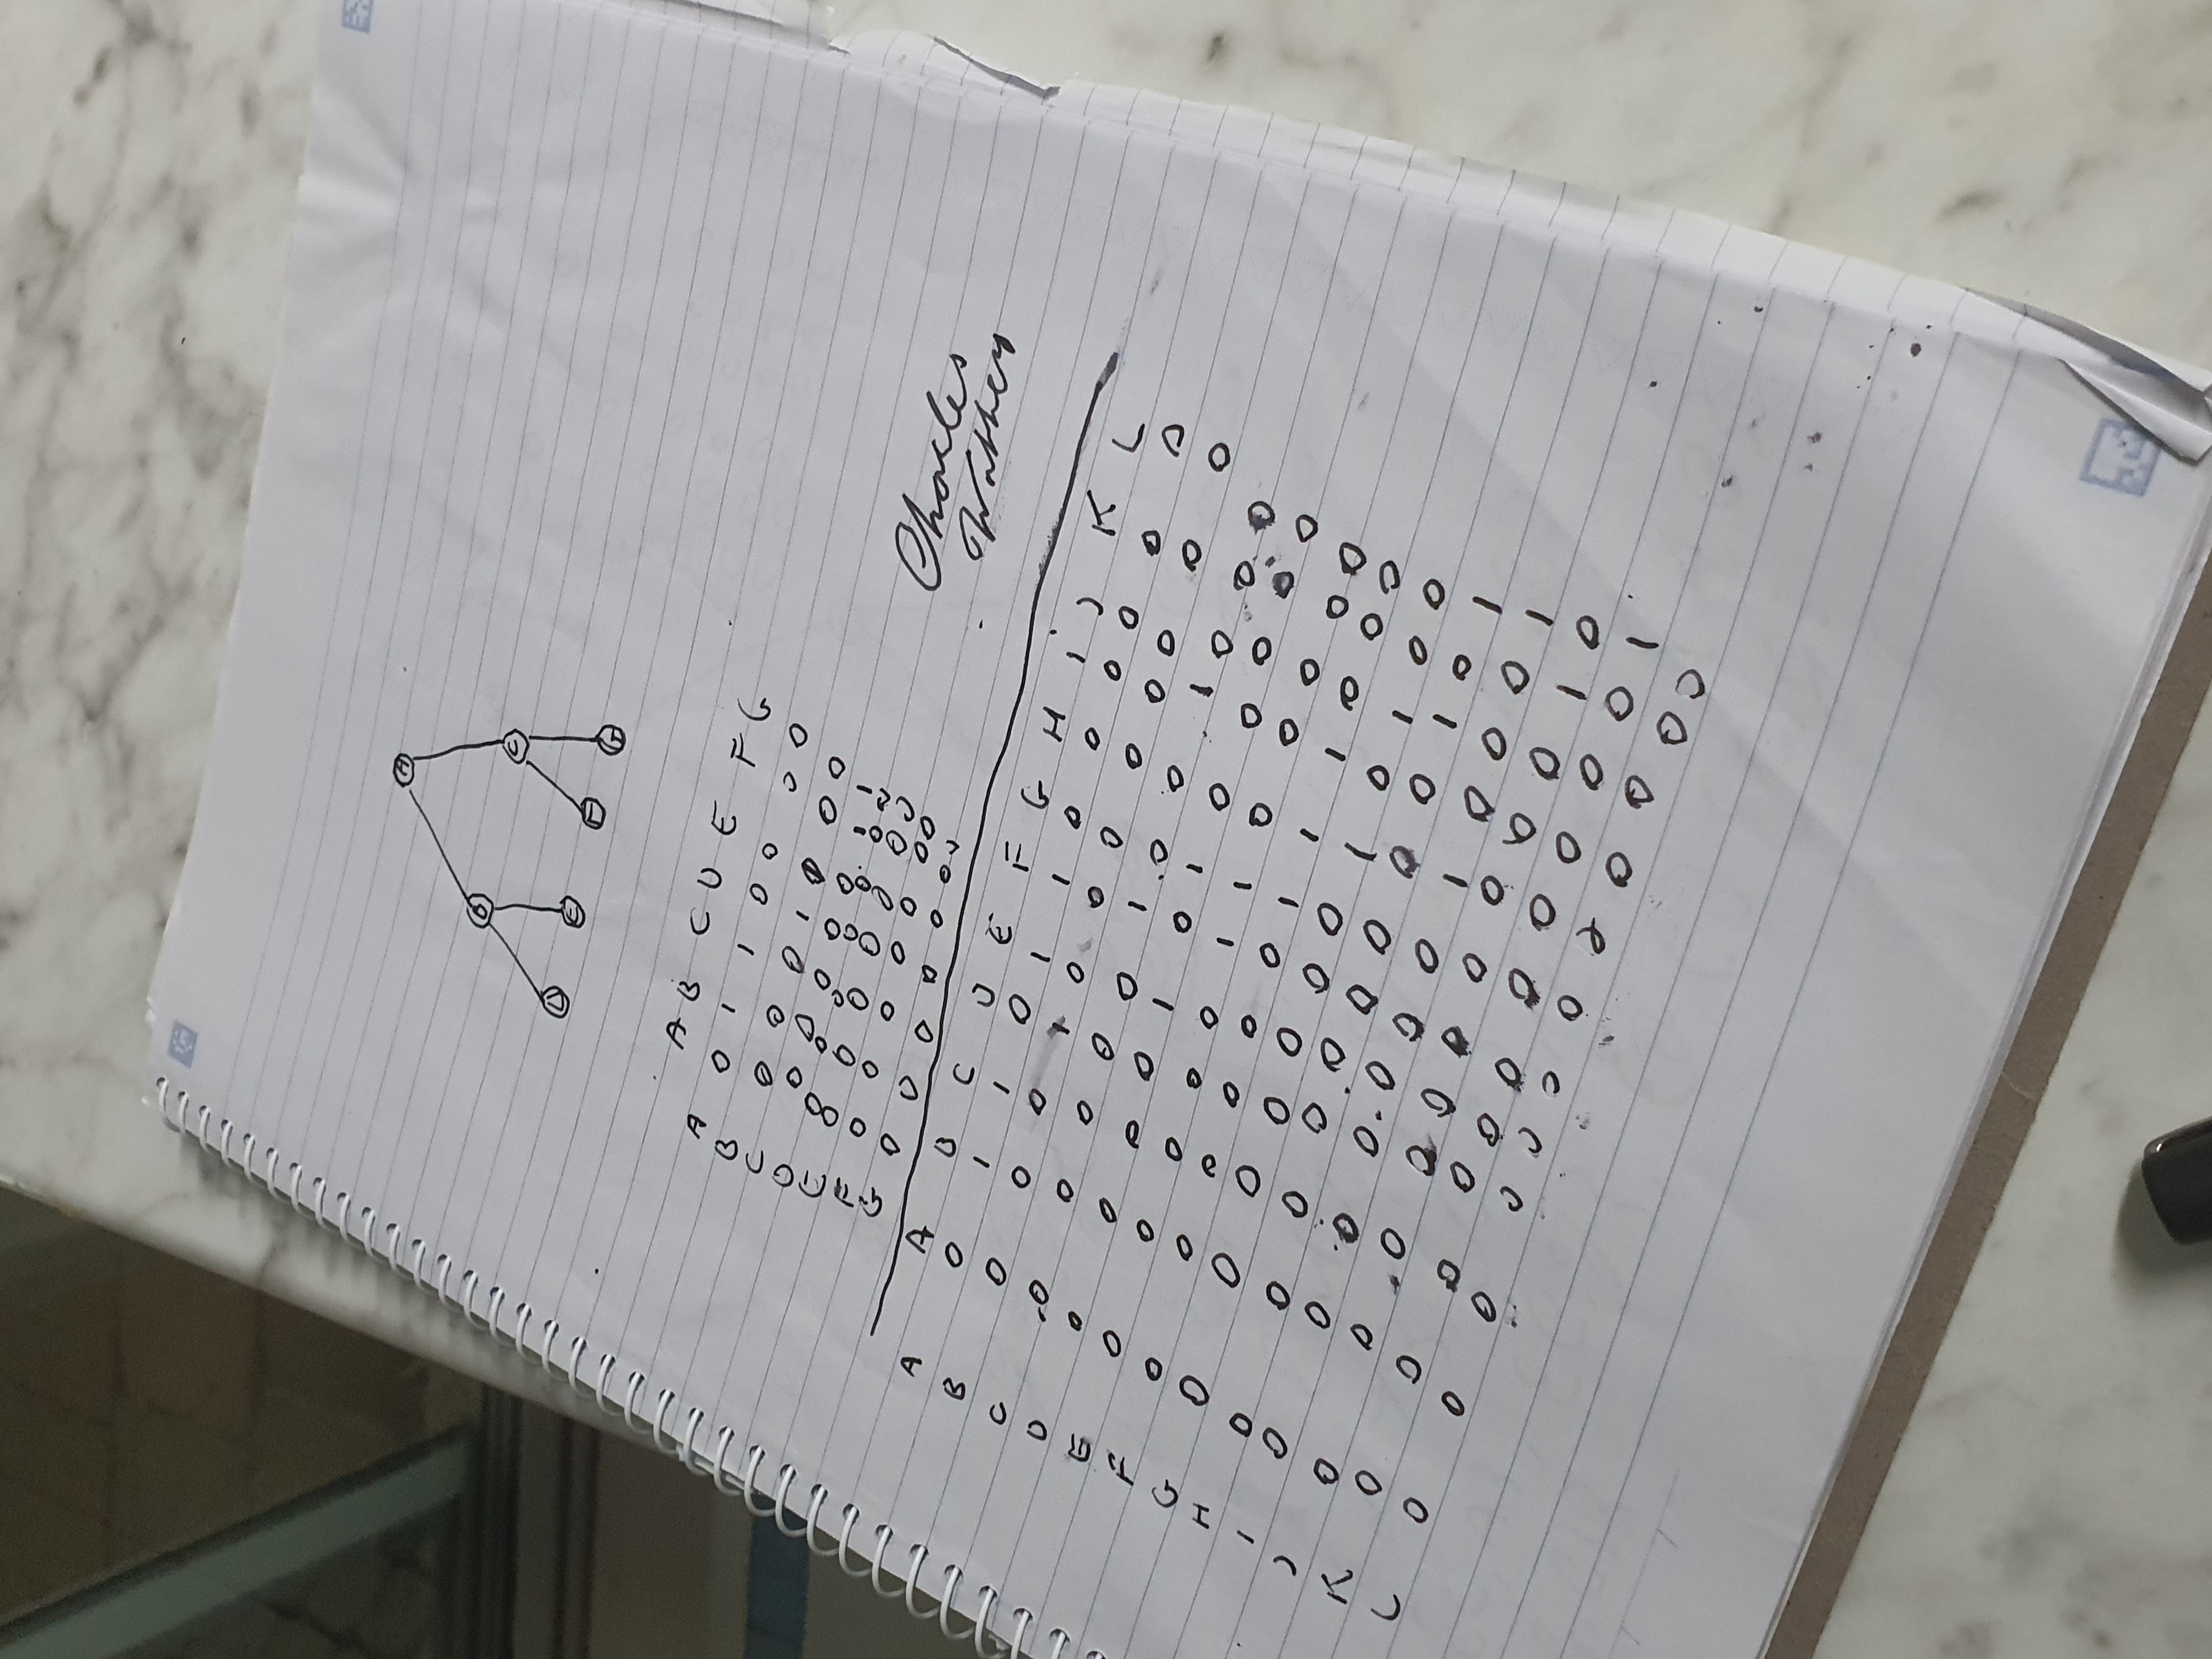 A
B
C
D E F G
A B C D E F G
A 0 1 1 0 0 0 0
B 0 0 0 1 0 0
C 0 0 0 0 0 1 1
D 0 0 0 0 0 0 0
E 0 0 0 0 0 0 0
F 0 0 0 0 0 0 0
G 0 0 0 0 0 0 0
Charles
A B C D E F G H I J K L
A 0 1 1 0 1 1 0 0 0 0 0 0
B 0 0 0 1 0 0 0 0 0 0 0 0
C 0 0 0 0 0 1 0 0 1 0 0 0
D 0 0 0 0 1 0 1 0 0 0 0 0
E 0 0 0 0 0 1 1 0 0 0 0 0
F 0 0 0 0 0 0 1 1 1 0 0 0
G 0 0 0 0 0 0 0 1 0 1 0 0
H 0 0 0 0 0 0 0 0 0 1 0 1
I 0 0 0 0 0 0 0 1 0 0 0 1
J 0 0 0 0 0 0 0 0 0 0 1 0
K 0 0 0 0 0 0 0 0 0 0 0 1
L 0 0 0 0 0 0 0 0 0 0 0 0